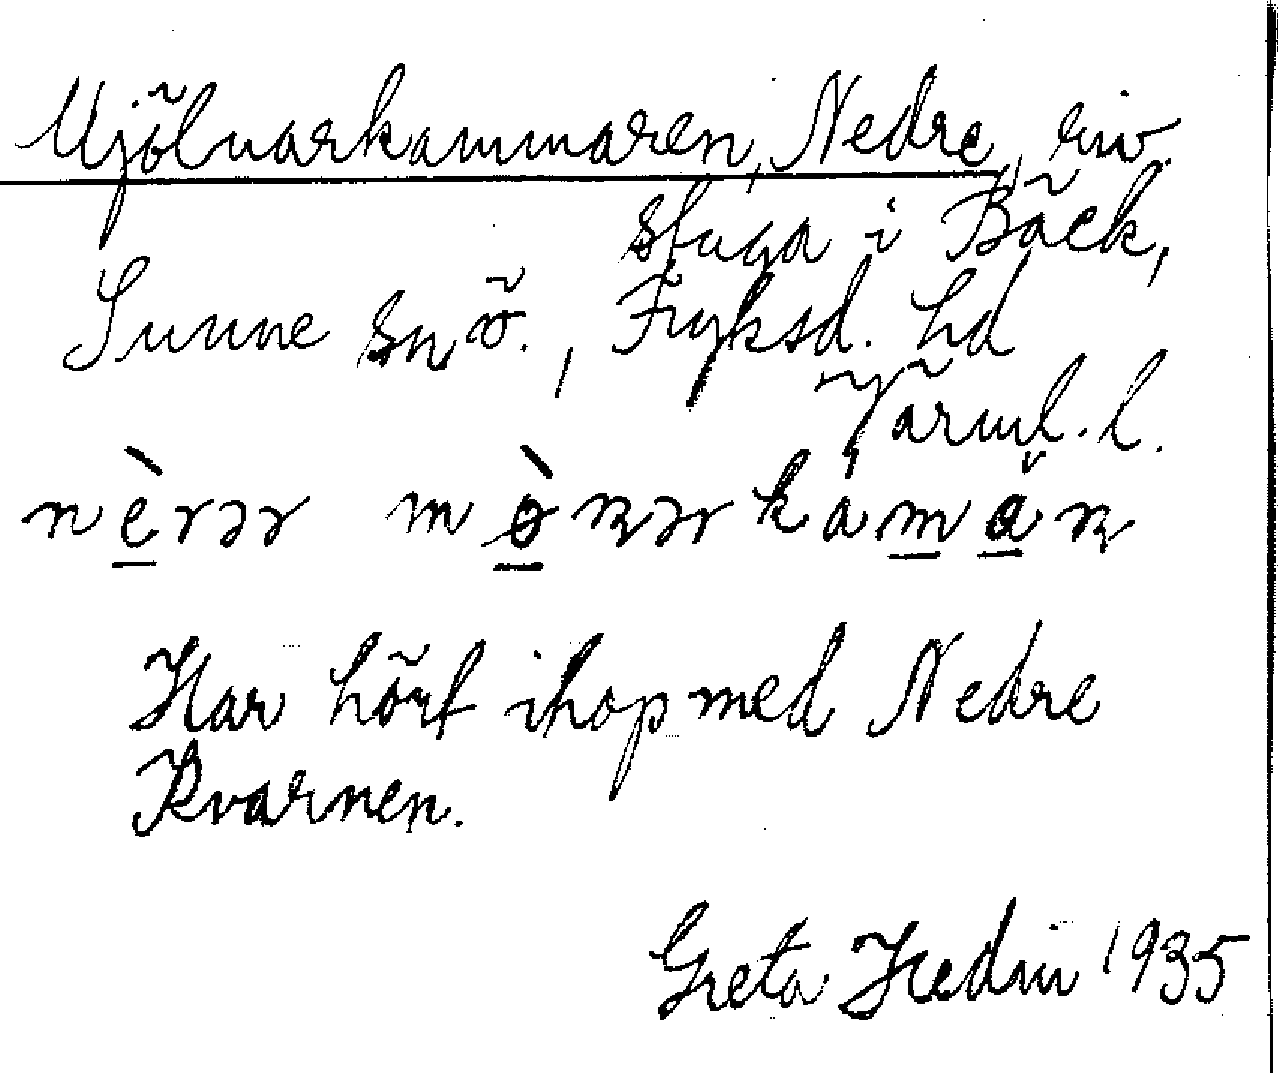 Mjölnarkammaren, Nedre, riv.
stuga i Bäck,
Sunne sn ö., Fryksd. hd
Värml. l.
nèrər mònərkamàn
Har hört ihop med Nedre
Kvarnen.
Greta Hedin 1935